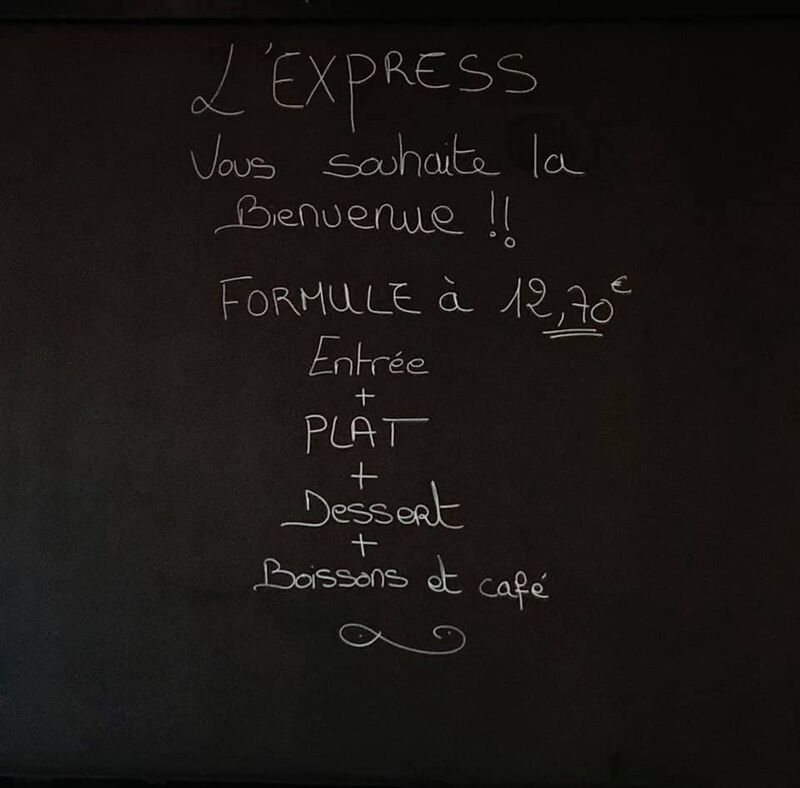 L'EXPRESS
Vous souhaite la
Bienvenue !!
FORMULE à 12,70€
Entrée
+
PLAT
+
Dessert
+
Boissons et café